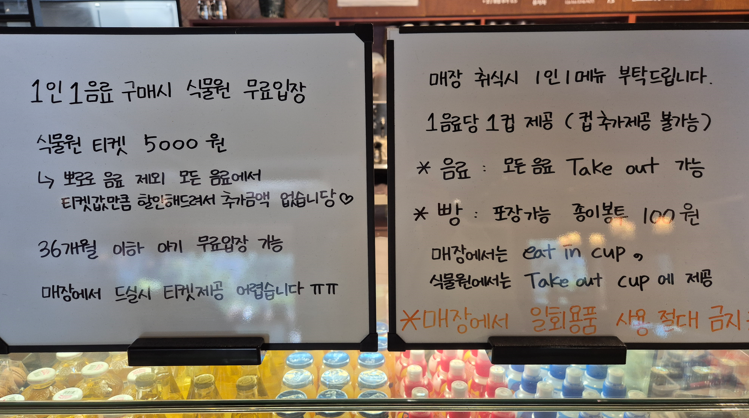 1인 1음료 구매시 식물원 무료입장
식물원 티켓 5000원
↳ 뽀로로 음료 제외 모든 음료에서
티켓값만큼 할인해드려서 추가금액 없습니당♡
36개월 이하 아기 무료입장 가능
매장에서 드실시 티켓제공 어렵습니다 ㅠㅠ
매장 취식시 1인 1메뉴 부탁드립니다.
1음료당 1컵 제공 (컵 추가제공 불가능)
* 음료 : 모든 음료 Take out 가능
* 빵 : 포장가능 종이봉트 100원
매장에서는 eat in cup,
식물원에서는 Take out cup 에 제공
*매장에서 일회용품 사용 절대 금지